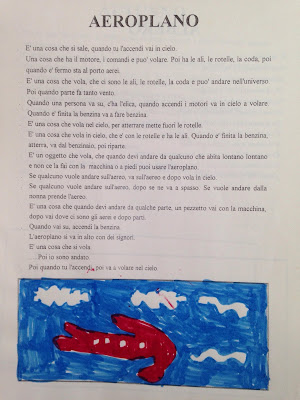 AEROPLANO
E' una cosa che si sale, quando tu l'accendi vai in cielo.
Una cosa che ha il motore, i comandi e puo' volare. Poi ha le ali, le rotelle, la coda, poi
quando e' fermo sta al porto aerei.
E' una cosa che vola, che ci sono le ali, le rotelle, la coda e puo' andare nell'universo.
Poi quando parte fa tanto vento.
Quando una persona va su, c'ha l'elica, quando accendi i motori va in cielo a volare.
Quando e' finita la benzina va a fare benzina.
E' una cosa che vola nel cielo, per atterrare mette fuori le rotelle.
E' una cosa che vola in cielo, che e' con le rotelle e ha le ali. Quando e' finita la benzina,
atterra, va dal benzinaio, poi riparte.
E' un oggetto che vola, che quando devi andare da qualcuno che abita lontano lontano
e non ce la fai con la macchina o a piedi puoi usare l'aeroplano.
Se qualcuno vuole andare sull'aereo, va sull'aereo e dopo vola in cielo.
Se qualcuno vuole andare sull'aereo, dopo se ne va a spasso. Se vuole andare dalla
nonna prende l'aereo.
E' una cosa che quando devi andare da qualche parte, un pezzetto vai con la macchina,
dopo vai dove ci sono gli aerei e dopo parti.
Quando vai su, accendi la benzina.
L'aeroplano si va in alto con dei signori.
E' una cosa che si vola.
....Poi io sono andato.
Poi quando tu l'accendi, poi va a volare nel cielo.